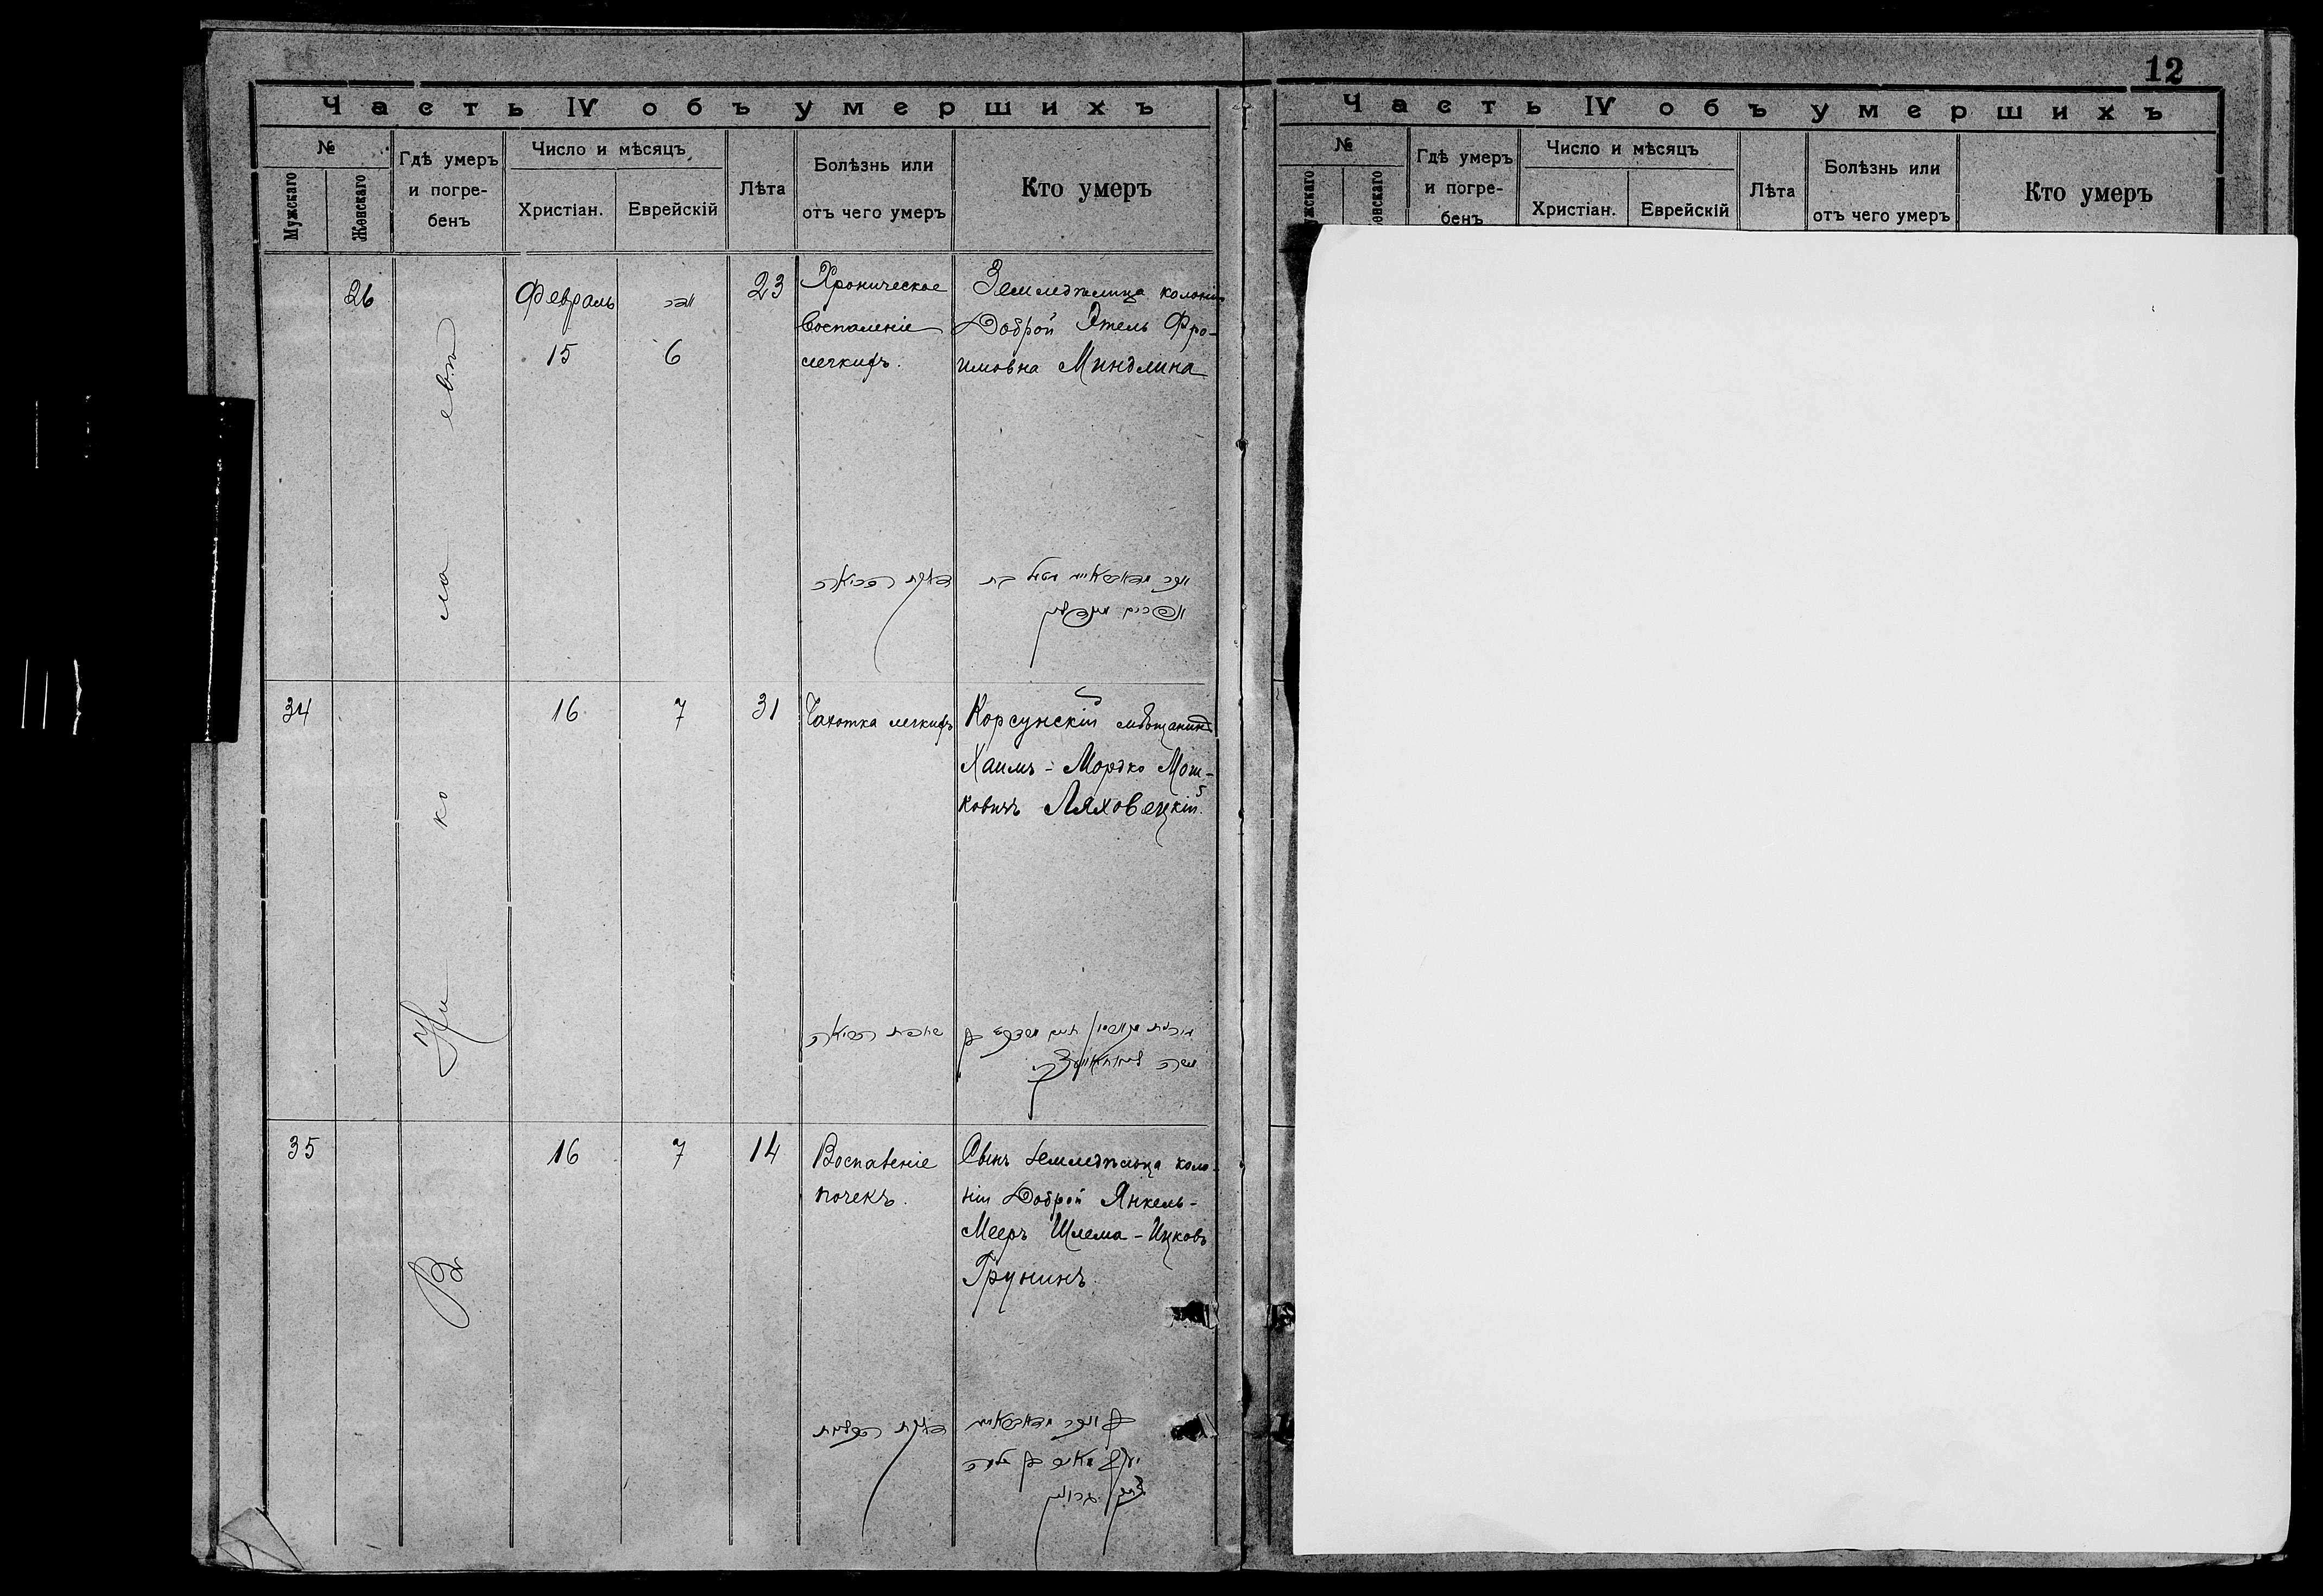 12
Часть IV объ умершихъ
№
Мужскаго
Женскаго
Гдѣ умеръ
и погре-
бенъ
Число и мѣсяцъ
Христіан.
Еврейскій
Лѣта
Болѣзнь или
отъ чего умеръ
Кто умеръ
26
Февраль
15
אדר
6
23
Хроническое
воспаленіе
легкихъ.
Земледѣлица колоніи
Доброй Этель Фро-
имовна Миндлина
דלקת הריאה
34
16
7
31
Чахотка легкихъ
Корсунскій мѣщанинъ
Хаимъ-Мордко Мош-
ковичъ Ляховецкій.
שחפת הריאה
35
16
7
14
Воспаленіе
почекъ.
Сынъ земледѣльца коло-
ніи Доброй Янкель-
Мееръ Шлема-Ицковъ
Грунинъ.
דלקת הכליות
Въ
Ни
ко
ла
евѣ
Часть IV объ умершихъ
№
Гдѣ умеръ
и погре-
бенъ
Число и мѣсяцъ
Христіан.
Еврейскій
Лѣта
Болѣзнь или
отъ чего умеръ
Кто умеръ